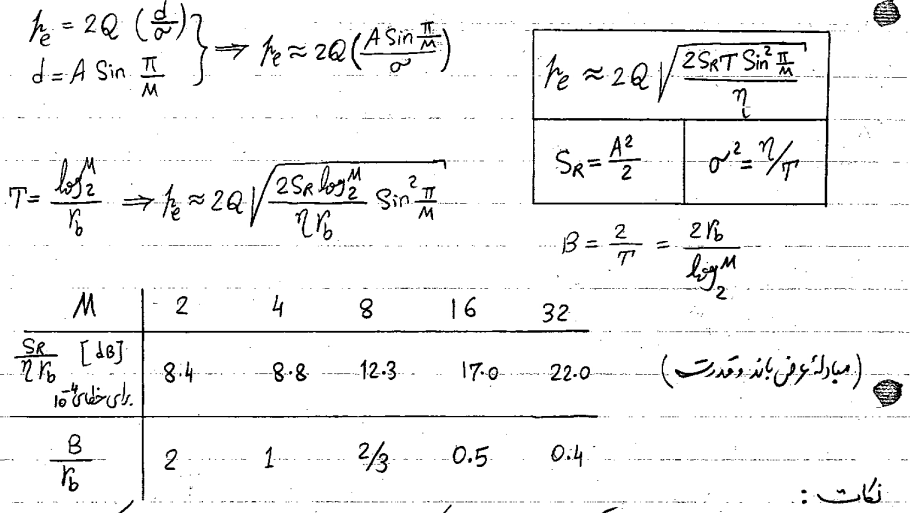 Pe = 2Q (d/σ)
d = A Sin π/M } ⇒ Pe ≈ 2Q (A Sin π/M / σ)
Pe ≈ 2Q √(2SRT Sin² π/M / η)
SR = A²/2
σ² = η/T
T = log₂M / rb ⇒ Pe ≈ 2Q √(2SR log₂M / ηrb Sin² π/M)
B = 2/T = 2rb / log₂M
M 2 4 8 16 32
SR/ηrb [dB] 8.4 8.8 12.3 17.0 22.0
برای خطای 10⁻⁴
(مبادلهٔ عرض باند و قدرت)
B/rb 2 1 2/3 0.5 0.4
نکات :